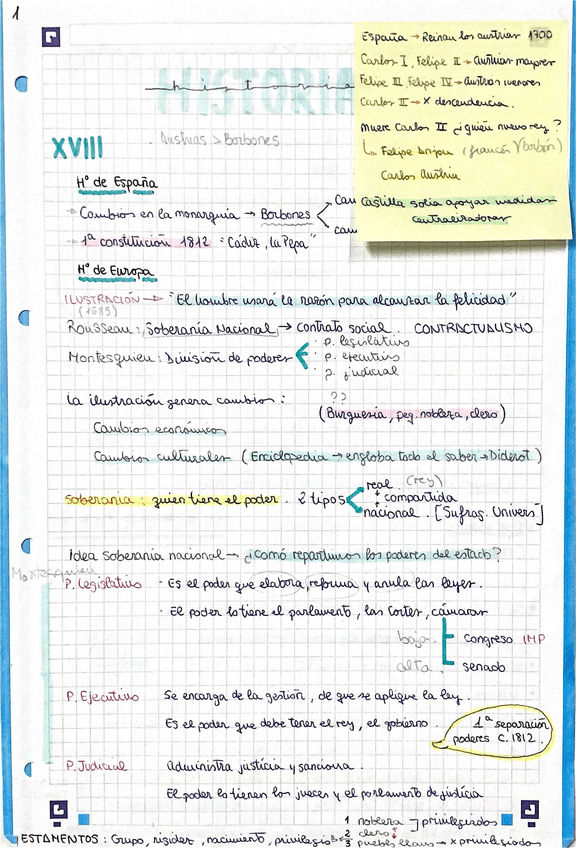 1
España → Reinan los austrias 1700
Carlos I, Felipe II → Austrias mayores
Felipe III, Felipe IV → Austrias menores
Carlos II → x descendencia.
Muere Carlos II ¿quién nuevo rey?
Felipe Anjou (francés / Borbón)
Carlos Austria
Castilla solía apoyar medidas
centralizadoras
HISTORIA
historia
XVIII
. Austrias > Borbones
Hª de España
→ Cambios en la monarquía → Borbones
→ 1ª constitución 1812 : Cádiz, "La Pepa"
Hª de Europa
ILUSTRACIÓN → "El hombre usará la razón para alcanzar la felicidad"
(1689)
Rousseau : Soberanía Nacional → contrato social . CONTRACTUALISMO
Montesquieu : División de poderes
· p. legislativo
· p. ejecutivo
· p. judicial
La ilustración genera cambios :
??
(Burguesía, peq. nobleza, clero)
Cambios económicos
Cambios culturales (Enciclopedia → engloba todo el saber → Diderot)
Soberanía : quien tiene el poder . 2 tipos
real . (rey)
compartida
nacional . [Sufrag. Univers]
Idea soberanía nacional → ¿Cómo repartimos los poderes del estado?
Montesquieu
P. Legislativo · Es el poder que elabora, reforma y anula las leyes.
· El poder lo tiene el parlamento, las Cortes, cámaras
baja . congreso IMP
alta . senado
P. Ejecutivo Se encarga de la gestión, de que se aplique la ley.
Es el poder que debe tener el rey, el gobierno .
1ª separación
poderes C. 1812 .
P. Judicial Administra justicia y sanciona .
El poder lo tienen los jueces y el parlamento de justicia
ESTAMENTOS : Grupo, rigidez, nacimiento, privilegio
1 nobleza
2 clero
privilegiados
3 pueblo llano → x privilegiados